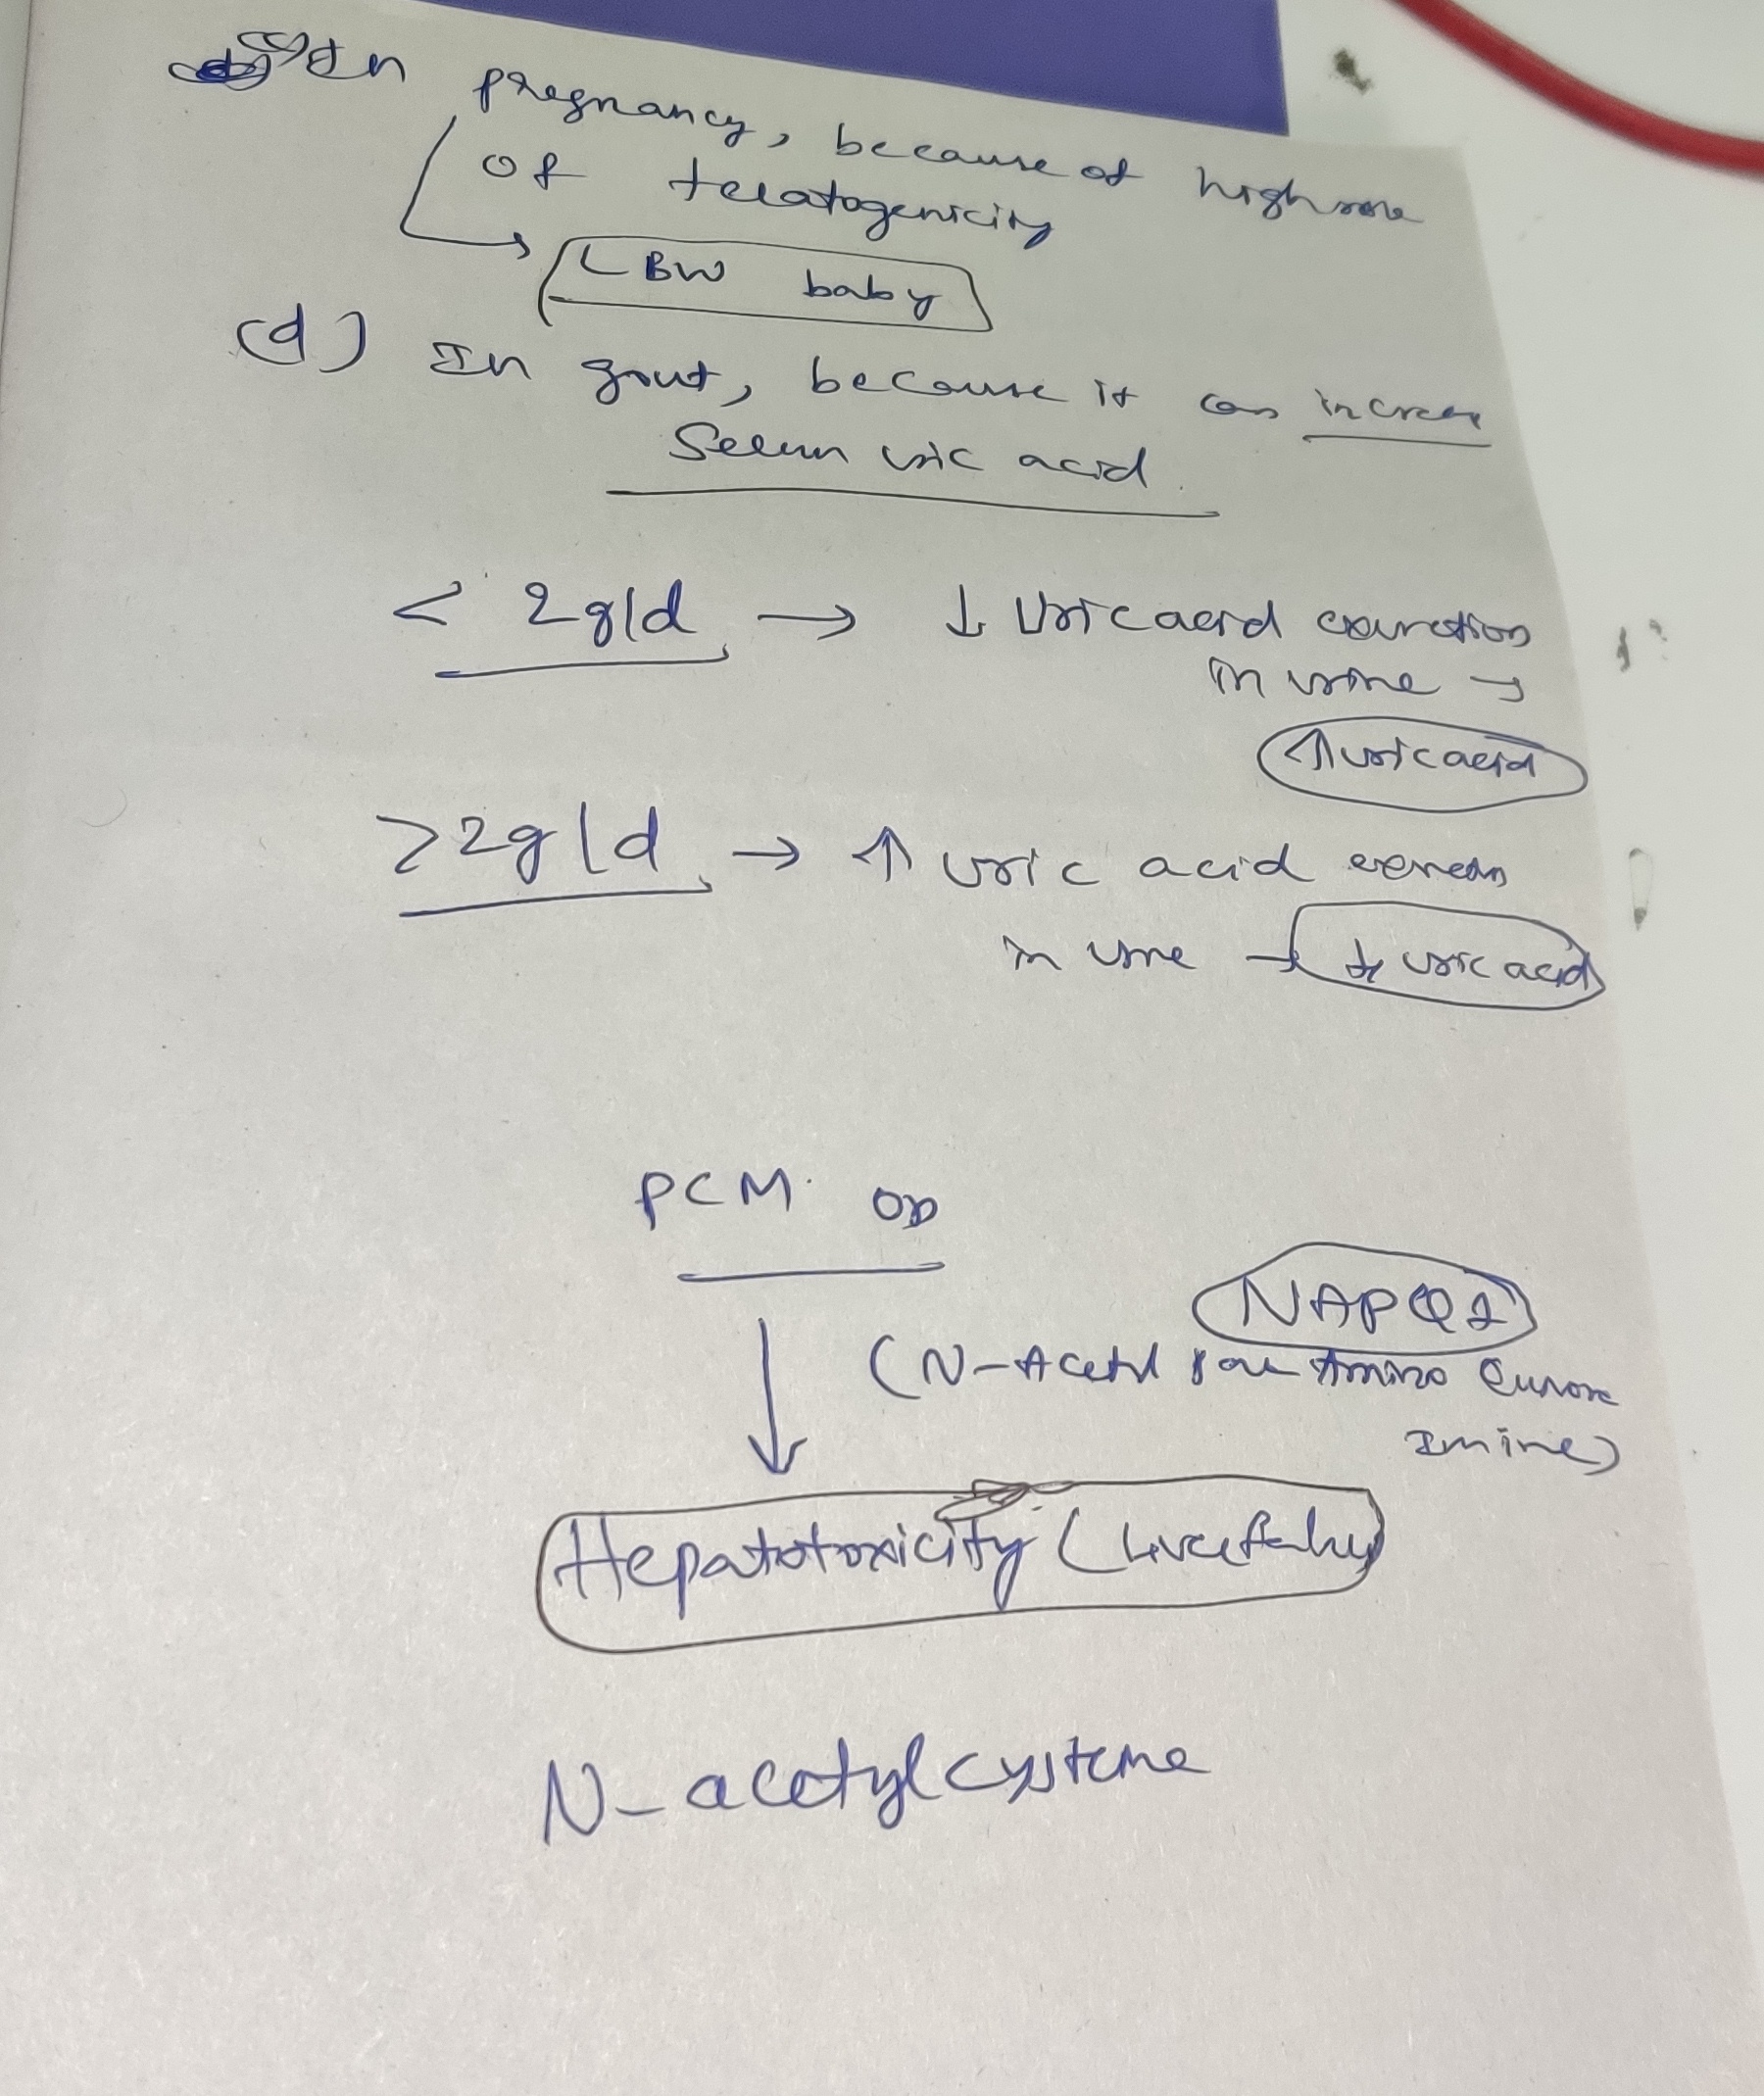 (c) In pregnancy, because of high risk
of teratogenicity
LBW baby
(d) In gout, because it can increase
Serum uric acid.
< 2g/d → ↓ Uric acid excretion
in urine →
↑ uric acid
>2g/d → ↑ uric acid excretion
in urine → ↓ uric acid
PCM OD
NAPQI
(N-Acetyl Amino
Imine)
Hepatotoxicity (
N-acetylcysteine